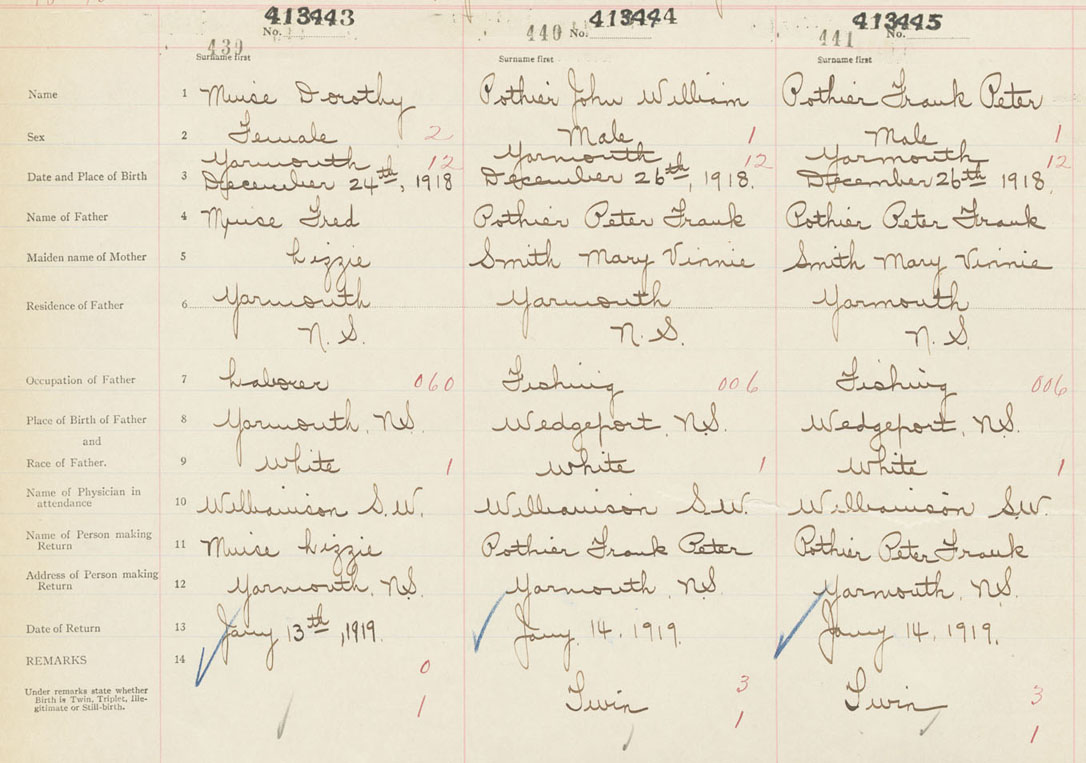 413443 413444 413445
439 No. 440 No. 441 No.
Surname first Surname first Surname first
Name 1 Muise Dorothy Pothier John William Pothier Frank Peter
Sex 2 Female 2 Male 1 Male 1
Yarmouth 12 Yarmouth 12 Yarmouth 12
Date and Place of Birth 3 December 24th, 1918 December 26th, 1918. December 26th 1918.
Name of Father 4 Muise Fred Pothier Peter Frank Pothier Peter Frank
Maiden name of Mother 5 Lizzie Smith Mary Vinnie Smith Mary Vinnie
Residence of Father 6 Yarmouth Yarmouth Yarmouth
N.S. N.S. N.S.
Occupation of Father 7 Laborer 060 Fishing 006 Fishing 006
Place of Birth of Father 8 Yarmouth, N.S. Wedgeport, N.S. Wedgeport, N.S.
and
Race of Father. 9 White 1 White 1 White 1
Name of Physician in
attendance 10 Williamson S.W. Williamson S.W. Williamson S.W.
Name of Person making
Return 11 Muise Lizzie Pothier Frank Peter Pothier Peter Frank
Address of Person making
Return 12 Yarmouth, N.S. Yarmouth, N.S. Yarmouth, N.S.
Date of Return 13 Jany 13th, 1919. Jany. 14, 1919. Jany 14, 1919.
REMARKS 14 0 3 3
Under remarks state whether
Birth is Twin, Triplet, Ille-
gitimate or Still-birth. 1 Twin 1 Twin 1